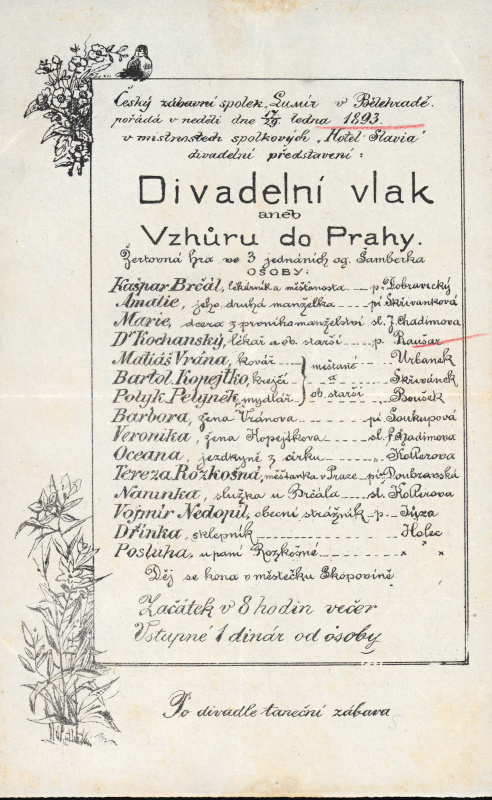 Český zábavní spolek „Lumír v Bělehradě.
pořádá v neděli dne 17/29 ledna 1893.
v místnostech spolkových „Hotel Slavia"
divadelní představení:
Divadelní vlak
aneb
Vzhůru do Prahy.
Žertovná hra ve 3 jednáních od Šamberka
OSOBY:
Kašpar Brčál, lékárník a měšťanosta - p. Dobravický
Amalie, jeho druhá manželka - pí Skřivanková
Marie, dcera z prvního manželství sl. J. Chadimova
Dr Kochanský, lékař a ob. starší - p. Raušar
Matiáš Vrána, kovář - měšťané Urbanek
Bartol. Kopejtko, krejčí - a Skřivánek
Polyk. Pelyněk, mydlář ob. starší Bouček
Barbora, žena Vránova - pí Soukupova
Veronika, žena Kopejtkova - sl. F. Chadimova
Oceana, jezdkyně z cirku - „ Kollerova
Tereza Rozkošná, měšťanka v Praze - pí Doubravská
Naninka, služka u Brčála - sl. Kollerova
Vojmír Nedopil, obecní strážník - p.
Dřínka, sklepník - Holec
Posluha, u paní Rozkošné - " "
Děj se kona v městečku Skopovině
Začátek v 8 hodin večer
Vstupné 1 dinár od osoby
Po divadle taneční zábava